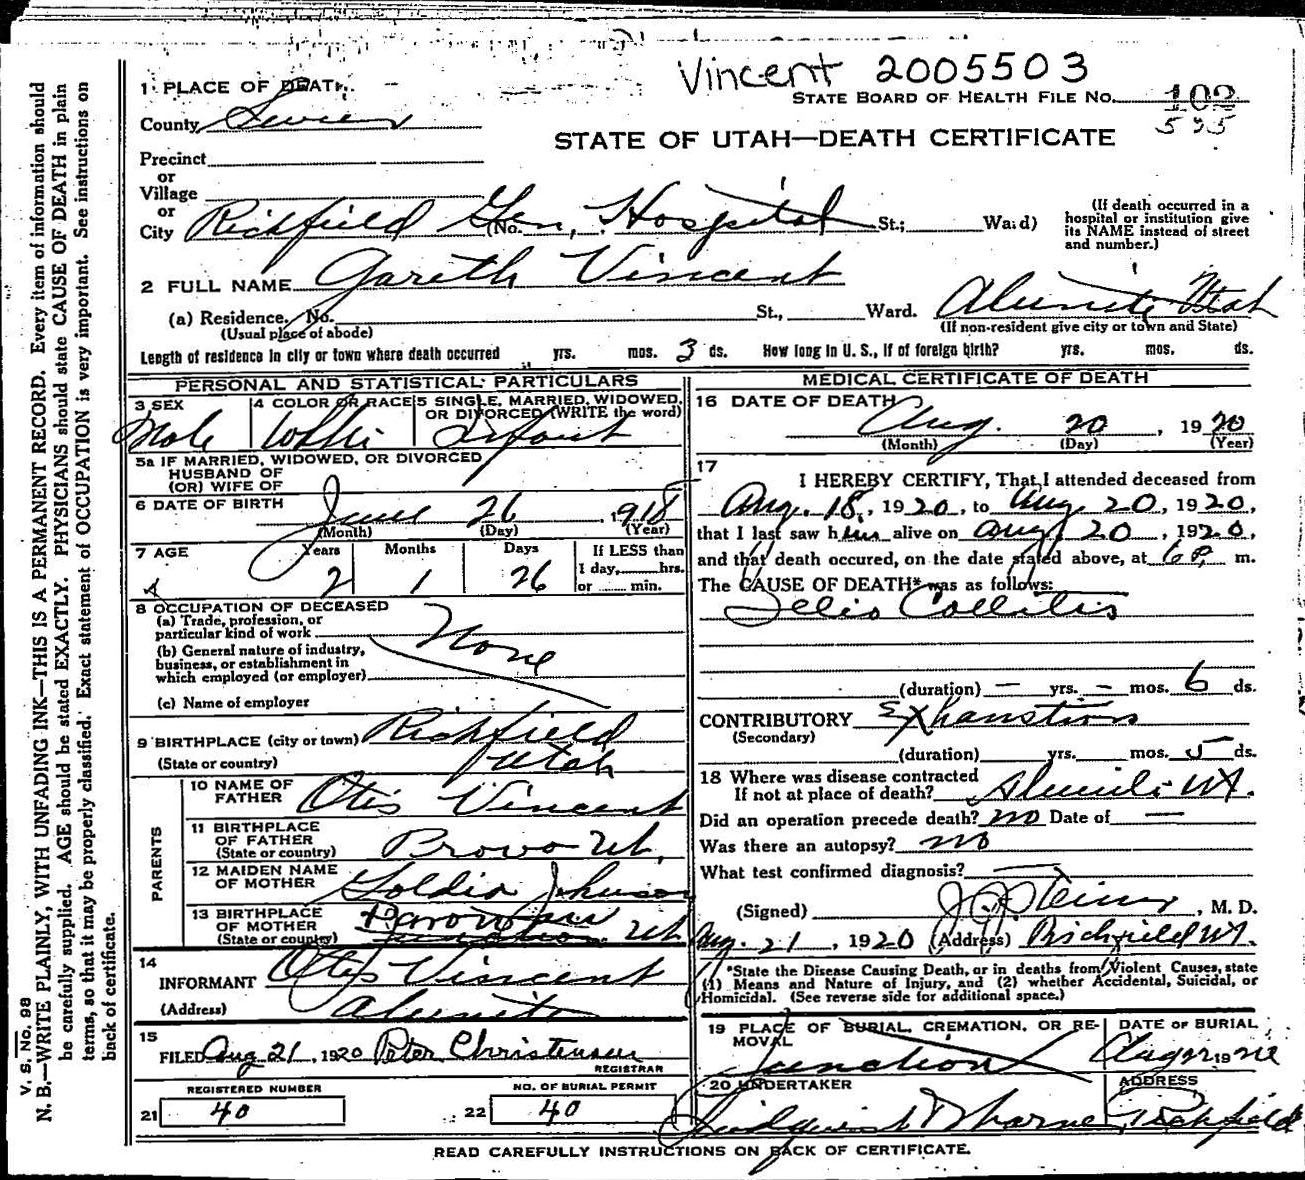 Vincent 2005503
STATE BOARD OF HEALTH FILE NO. 102
595
STATE OF UTAH—DEATH CERTIFICATE
1 PLACE OF DEATH.
County Sevier
Precinct
or
Village
or
City Richfield Gen. Hospital (No. St.; Ward)
(If death occurred in a hospital or institution give its NAME instead of street and number.)
2 FULL NAME Gareth Vincent
(a) Residence. No. St., Ward. Alunite Utah
(Usual place of abode) (If non-resident give city or town and State)
Length of residence in city or town where death occurred yrs. mos. 3 ds. How long in U. S., if of foreign birth? yrs. mos. ds.
PERSONAL AND STATISTICAL PARTICULARS
3 SEX Male
4 COLOR OR RACE White
5 SINGLE, MARRIED, WIDOWED, OR DIVORCED (WRITE the word) Infant
5a IF MARRIED, WIDOWED, OR DIVORCED
HUSBAND OF
(OR) WIFE OF
6 DATE OF BIRTH June 26, 1918
(Month) (Day) (Year)
7 AGE Years 2 Months 1 Days 26
If LESS than 1 day, hrs. or min.
8 OCCUPATION OF DECEASED
(a) Trade, profession, or particular kind of work None
(b) General nature of industry, business, or establishment in which employed (or employer)
(c) Name of employer
9 BIRTHPLACE (city or town) Richfield
(State or country) Utah
PARENTS
10 NAME OF FATHER Otis Vincent
11 BIRTHPLACE OF FATHER (State or country) Provo Ut.
12 MAIDEN NAME OF MOTHER Goldie Johnson
13 BIRTHPLACE OF MOTHER (State or country) Parowan Junction Ut.
14 INFORMANT Otis Vincent
(Address) Alunite
15 FILED Aug 21, 1920 Peter Christensen
REGISTRAR
REGISTERED NUMBER
21 40
NO. OF BURIAL PERMIT
22 40
MEDICAL CERTIFICATE OF DEATH
16 DATE OF DEATH Aug. 20, 1920
(Month) (Day) (Year)
17 I HEREBY CERTIFY, That I attended deceased from
Aug. 18, 1920, to Aug. 20, 1920,
that I last saw him alive on Aug 20, 1920,
and that death occured, on the date stated above, at 6 P. m.
The CAUSE OF DEATH* was as follows:
Ilio Collitis
(duration) — yrs. — mos. 6 ds.
CONTRIBUTORY Exhaustion
(Secondary)
(duration) yrs. mos. 5 ds.
18 Where was disease contracted
If not at place of death? Alunite Ut.
Did an operation precede death? no Date of —
Was there an autopsy? no
What test confirmed diagnosis? —
(Signed) M. D.
Aug. 21, 1920 (Address) Richfield Ut.
*State the Disease Causing Death, or in deaths from Violent Causes, state (1) Means and Nature of Injury, and (2) whether Accidental, Suicidal, or Homicidal. (See reverse side for additional space.)
19 PLACE OF BURIAL, CREMATION, OR REMOVAL Junction
DATE OF BURIAL
20 UNDERTAKER
ADDRESS Richfield
READ CAREFULLY INSTRUCTIONS ON BACK OF CERTIFICATE.
V. S. No. 98
N. B.—WRITE PLAINLY, WITH UNFADING INK—THIS IS A PERMANENT RECORD. Every item of information should
be carefully supplied. AGE should be stated EXACTLY. PHYSICIANS should state CAUSE OF DEATH in plain
terms, so that it may be properly classified. Exact statement of OCCUPATION is very important. See instructions on
back of certificate.